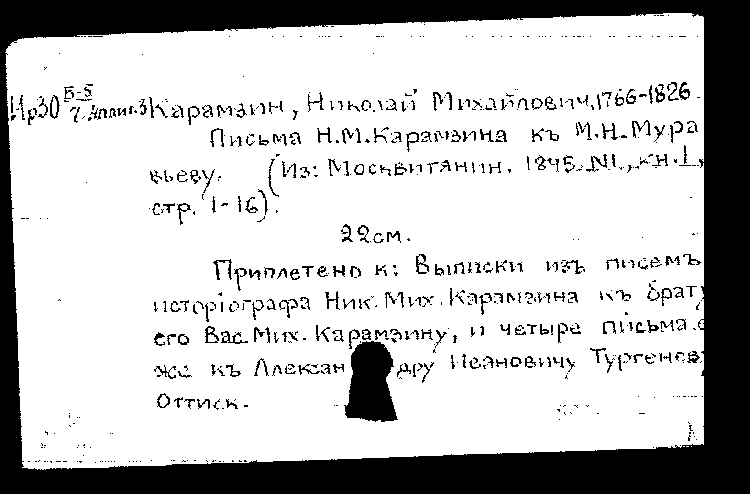 Ир30 Б-5/7 аллиг.3 Карамзин, Николай Михайлович, 1766-1826
Письма Н.М. Карамзина къ М.Н. Мура
вьеву. (Из: Москвитянин. 1845. N1., кн. 1,
стр. 1-16).
22 см.
Приплетено к: Выписки изъ писемъ
исторіографа Ник. Мих. Карамзина къ брату
его Вас. Мих. Карамзину, и четыре письма е
же къ Александру Ивановичу Тургеневу
Оттиск.